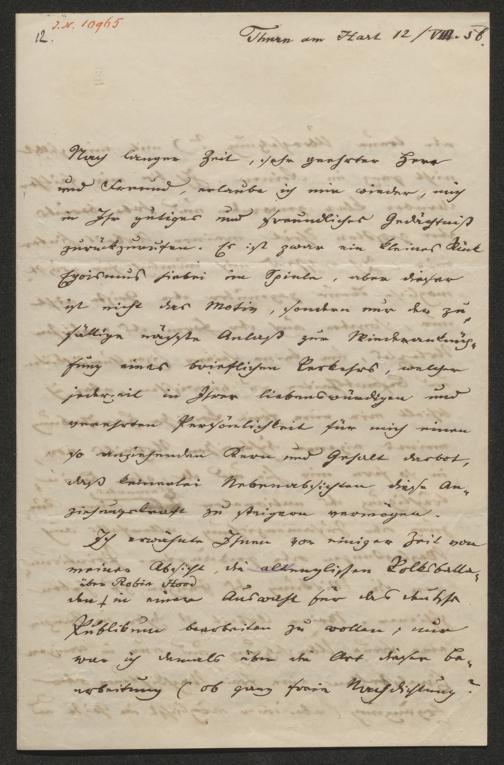 J. N. 10965
12.
Thurn am Hart 12/VIII. 56.
Nach langer Zeit, sehr geehrter Herr
und Freund, erlaube ich mir wieder, mich
in Ihr gütiges und freundliches Gedächtniß
zurückzurufen. Es ist zwar ein kleines Stück
Egoismus hiebei im Spiele, aber dieser
ist nicht das Motiv, sondern nur der zu-
fällige nächste Anlaß zur Wiederanknüp-
fung eines brieflichen Verkehrs, welcher
jederzeit in Ihrer liebenswürdigen und
verehrten Persönlichkeit für mich einen
so anziehenden Kern und Gehalt darbot,
daß keinerlei Nebenabsichten diese An-
ziehungskraft zu steigern vermögen.
Ich erwähnte Ihnen vor einiger Zeit von
meiner Absicht, die altenglischen Volksballa-
über Robin Hood
den in einer Auswahl für das deutsche
Publikum bearbeiten zu wollen; nur
war ich damals über die Art dieser Be-
arbeitung (ob ganz freie Nachdichtung?